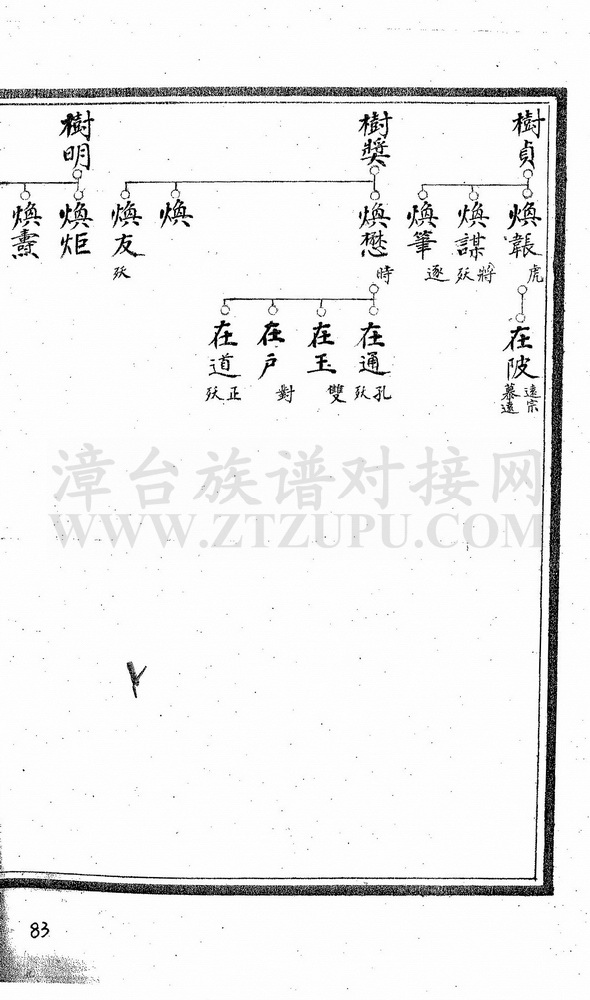 樹貞
樹獎
樹明
煥
虎
煥謀
將
殀
煥筆
逐
煥懋
時
煥
煥友
殀
煥炬
煥燾
在陂
遠宗
慕遠
在通
孔
殀
在玉
雙
在戶
對
在道
正
殀
漳台族谱对接网
WWW.ZTZUPU.COM
83